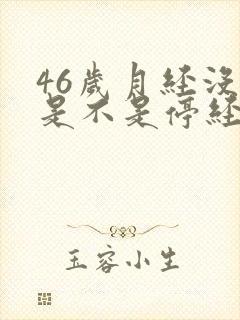 46歲月经没
是不是停经
玉容小生